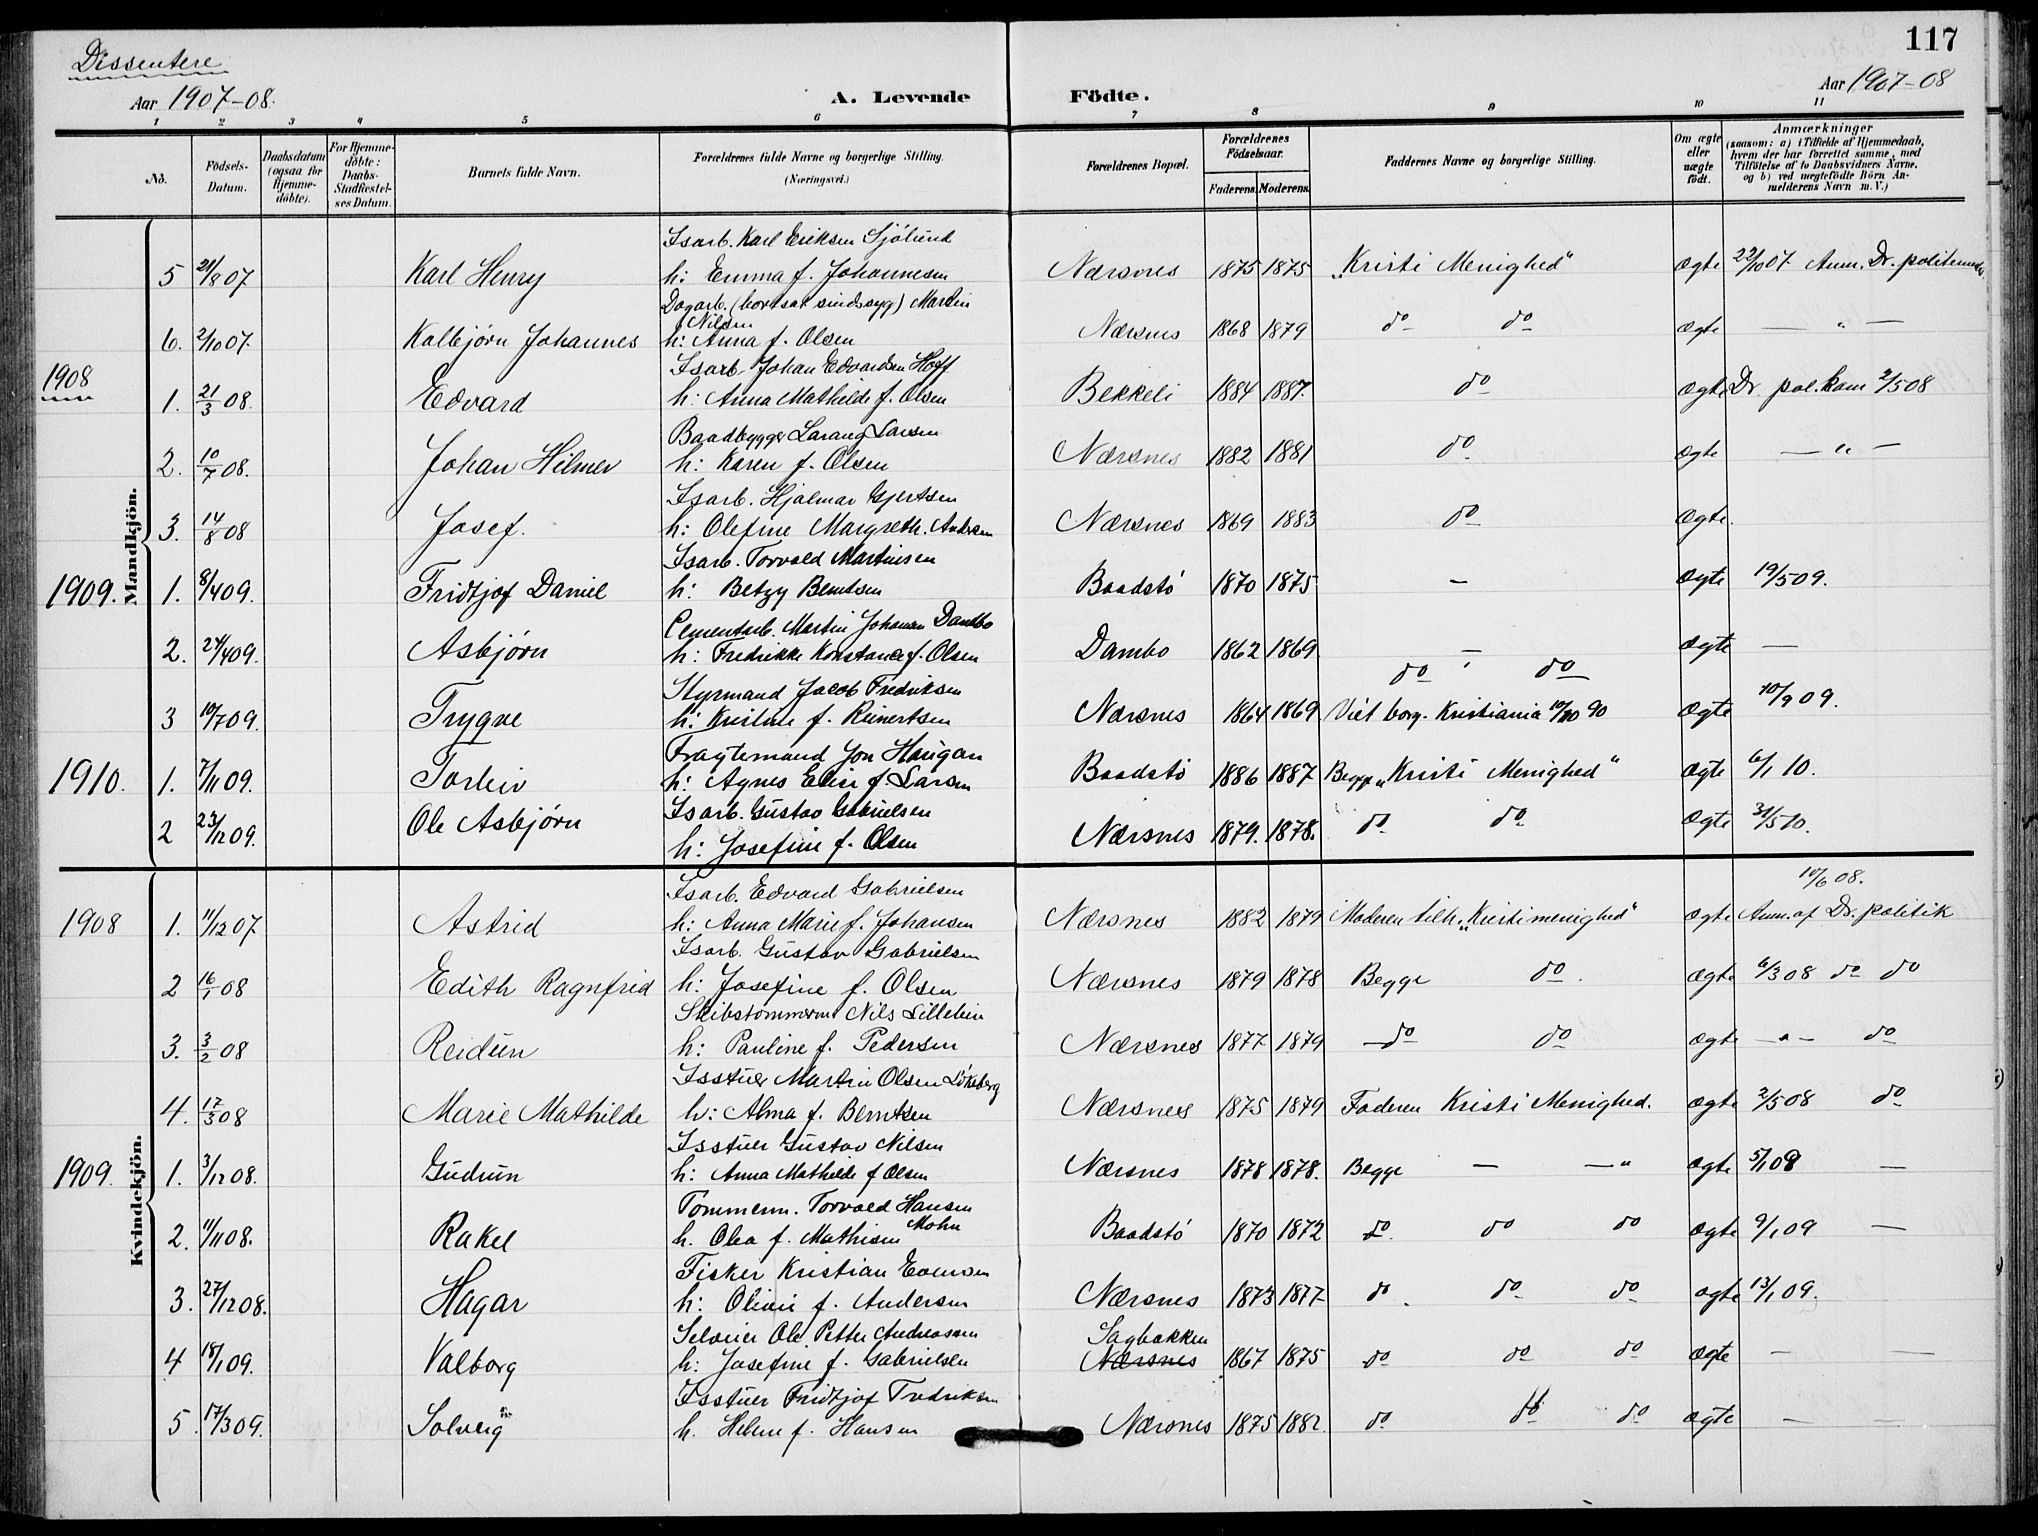 117
Dissentere
Aar 1907-08.
A. Levende Födte.
Aar 1907-08
1 2 3 4 5 6 7 8 9 10 11
No. Födsels-Datum. Daabsdatum (ogsaa for Hjemme-döbte). For Hjemme-döbte: Daabs-Stadfæstel-ses Datum. Barnets fulde Navn. Forældrenes fulde Navne og borgerlige Stilling. (Næringsvei.) Forældrenes Bopæl. Forældrenes Födselsaar. Faderens. Moderens. Faddernes Navne og borgerlige Stilling. Om ægte eller uægte födt. Anmærkninger (saasom: a) i Tilfælde af Hjemmedaab, hvem der har forrettet samme, med Tilföielse af to Daabsvidners Navne, og b) ved uægtefödte Börn An-melderens Navn m. V.)
Mandkjön.
Isarb. Karl Eriksen Sjölund
5 21/8 07 Karl Henry h: Emma f. Johannesen Nærsnes 1875 1875 "Kristi Menighed" ægte 22/10 07 Anm. Dr. politem
Dagarb. (bortsat sindssyg) Martin Nilsen
6. 2/10 07. Kolbjørn Johannes h: Anna f. Olsen Nærsnes 1868 1879 do do ægte — " —
1908
Isarb. Johan Edvardsen Hoff
1. 21/3 08. Edvard h: Anna Mathilde f. Olsen Bekkeli 1884 1887. do ægte Dr. pol.kam 2/5 08
Baadbygger Laraug Larsen
2. 10/7 08. Johan Hilmer h: Karen f. Olsen Nærsnes 1882 1881 do ægte — " —
Isarb. Hjalmar Gjertsen
3. 14/8 08 Josef. h: Olefine Margreth. Andersen Nærsnes 1869 1883 do ægte.
Isarb. Torvald Martinsen
1909. 1. 8/4 09. Fridtjof Daniel h: Betzy Berntsen Baadstö 1870 1875 — ægte 19/5 09.
Cementarb. Martin Johansen Dambo
2. 24/4 09. Asbjørn h: Fredrikke Konstance f. Olsen Dambo 1862 1869 — ægte —
do do
Styrmand Jacob Fredriksen
3 10/7 09. Trygve h: Kristine f. Reinertsen Nærsnes 1864 1869 Viet borg. Kristiania 10/10 90 ægte 10/9 09.
Fragtemand Jon Haugan
1910. 1. 7/11 09. Torleiv h: Agnes Elise f. Larsen Baadstö 1886 1887 Begge "Kristi Menighed" ægte 6/1 10.
Isarb. Gustav Gabrielsen
2 23/12 09. Ole Asbjørn h: Josefine f. Olsen Nærsnes 1879. 1878. do do ægte 31/5 10.
Kvindekjön.
Isarb. Edvard Gabrielsen 10/6 08.
1908 1. 11/12 07 Astrid h: Anna Marie f. Johansen Nærsnes 1882 1879 Moderen tilh. "Kristi menighed" ægte Anm. af Dr. politik
Isarb. Gustav Gabrielsen
2 16/1 08 Edith Ragnfrid h: Josefine f. Olsen Nærsnes 1879 1878 Begge do. ægte 6/3 08 do do
Skibstømmerm Nils Lillelien
3. 3/2 08 Reidun h: Pauline f. Pedersen Nærsnes 1877 1879 —do do ægte — " — do
Isstuer Martin Olsen Löksberg
4. 17/3 08 Marie Mathilde h: Alma f. Berntsen Nærsnes 1875 1879 Faderen Kristi Menighed. ægte 2/5 08 do
Isstuer Gustav Nilsen
1909. 1. 3/12 08. Gudrun h: Anna Mathilde f Olsen Nærsnes 1878 1878. Begge — — " ægte 5/1 09 —
Tømmerm. Torvald Hansen Mohn
2. 11/11 08. Rakel h. Olea f. Mathisen Baadstö 1870 1872 do. do do ægte 9/1 09 —
Fisker Kristian Evensen
3. 27/12 08. Hagar h: Olivie f. Andersen Nærsnes 1873 1877 do. do do ægte 13/1 09.
Seleier Ole Petter Andreassen Sagbakken
4 18/1 09. Valborg h: Josefine f. Gabrielsen Nærsnes 1867 1875 do do do ægte — —
Isstuer Fridtjof Fredriksen
5 17/3 09. Solveig h. Helene f. Hansen Nærsnes 1875 1882. do do do ægte — —